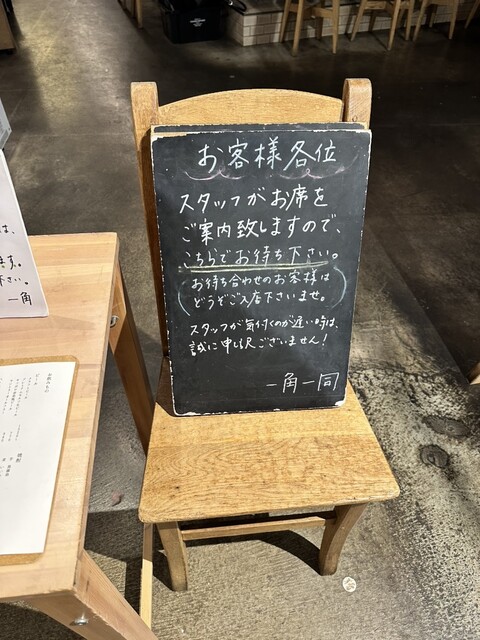 お客様各位
スタッフがお席を
ご案内致しますので、
こちらでお待ち下さい。
(お待ち合わせのお客様は
どうぞご入店下さいませ。)
スタッフが気付くのが遅い時は、
誠に申し訳ございません!
一角一同
は、
ます。
下さい。
一角
ビール
焼酎